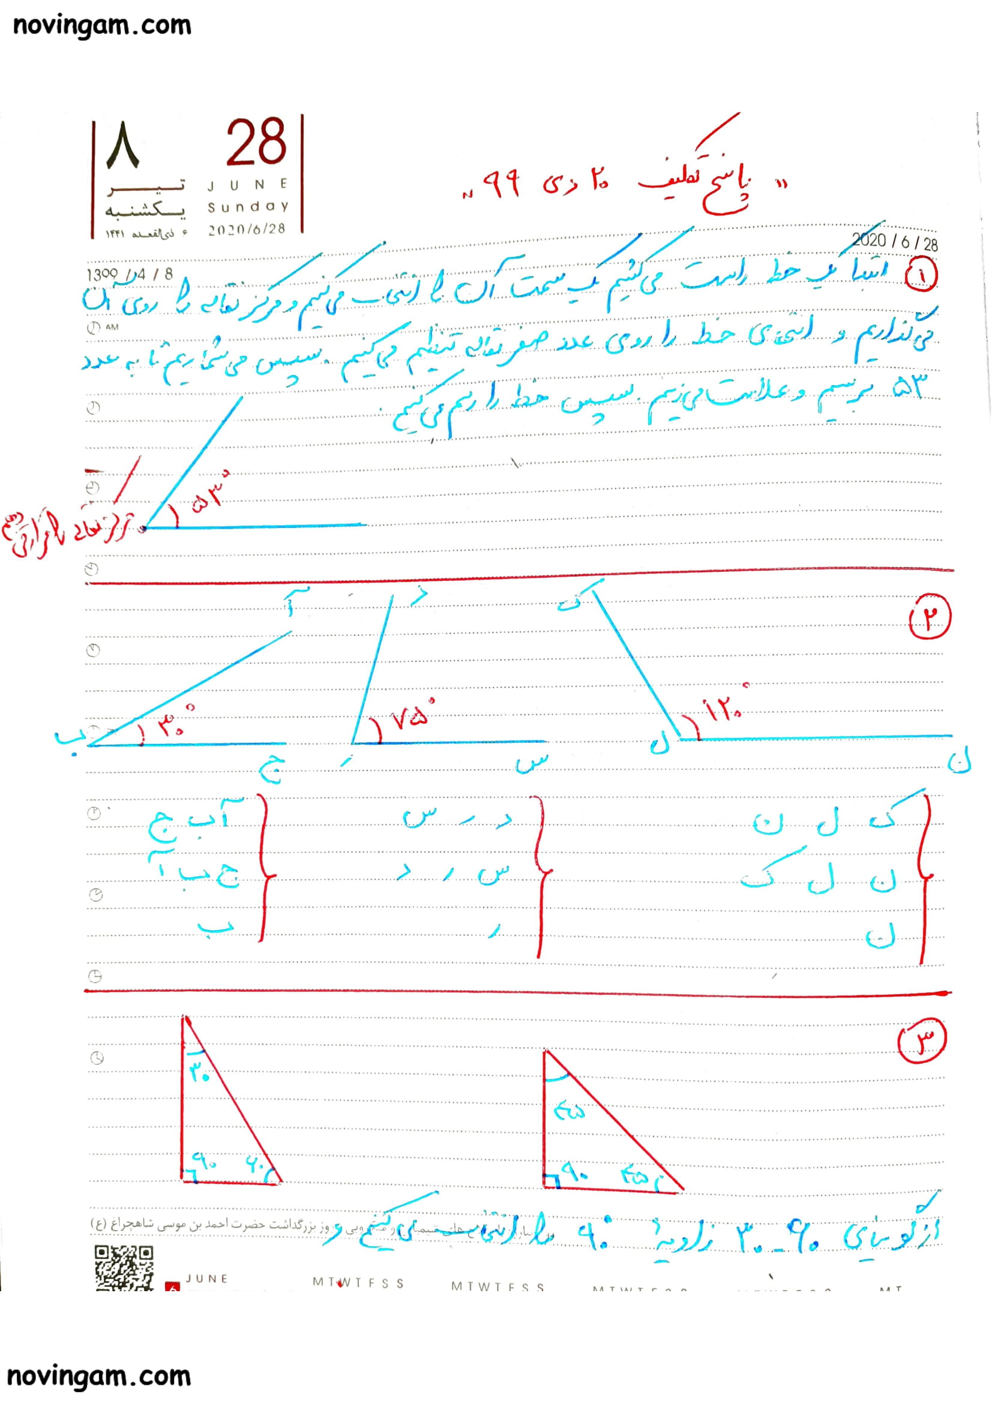 novingam.com
۸
28
تیر
JUNE
یکشنبه
Sunday
۶ ذی‌القعده ۱۴۴۱
2020/6/28
" پاسخ تکلیف ۲۰ دی ۹۹ "
2020 / 6 / 28
1399 / 4 / 8
۱
ابتدا یک خط راست می‌کشیم یک سمت آن را انتخاب می‌کنیم و مرکز نقاله را روی آن
AM
می‌گذاریم و انتهای خط را روی عدد صفر نقاله تنظیم می‌کنیم . سپس می‌شماریم تا به عدد
۵۳ برسیم و علامت می‌زنیم . سپس خط را رسم می‌کنیم .
۵۳°
مرکز نقاله را قرار می‌دهیم
۲
آ د ک
۳۰° ۷۵° ۱۲۰°
ب ج ر س ل ن
ک ل ن
ن ل ک
ن
د ر س
س ر د
ر
آ ب ج
ج ب آ
ب
۳
۳۰
۹۰ ۶۰
۴۵
۹۰ ۴۵
از گونیای ۶۰ - ۳۰ زاویهٔ ۹۰° را انتخاب می‌کنیم و
روز بزرگداشت حضرت احمد بن موسی شاهچراغ (ع)
6 JUNE
M T W T F S S
M T W T F S S
novingam.com